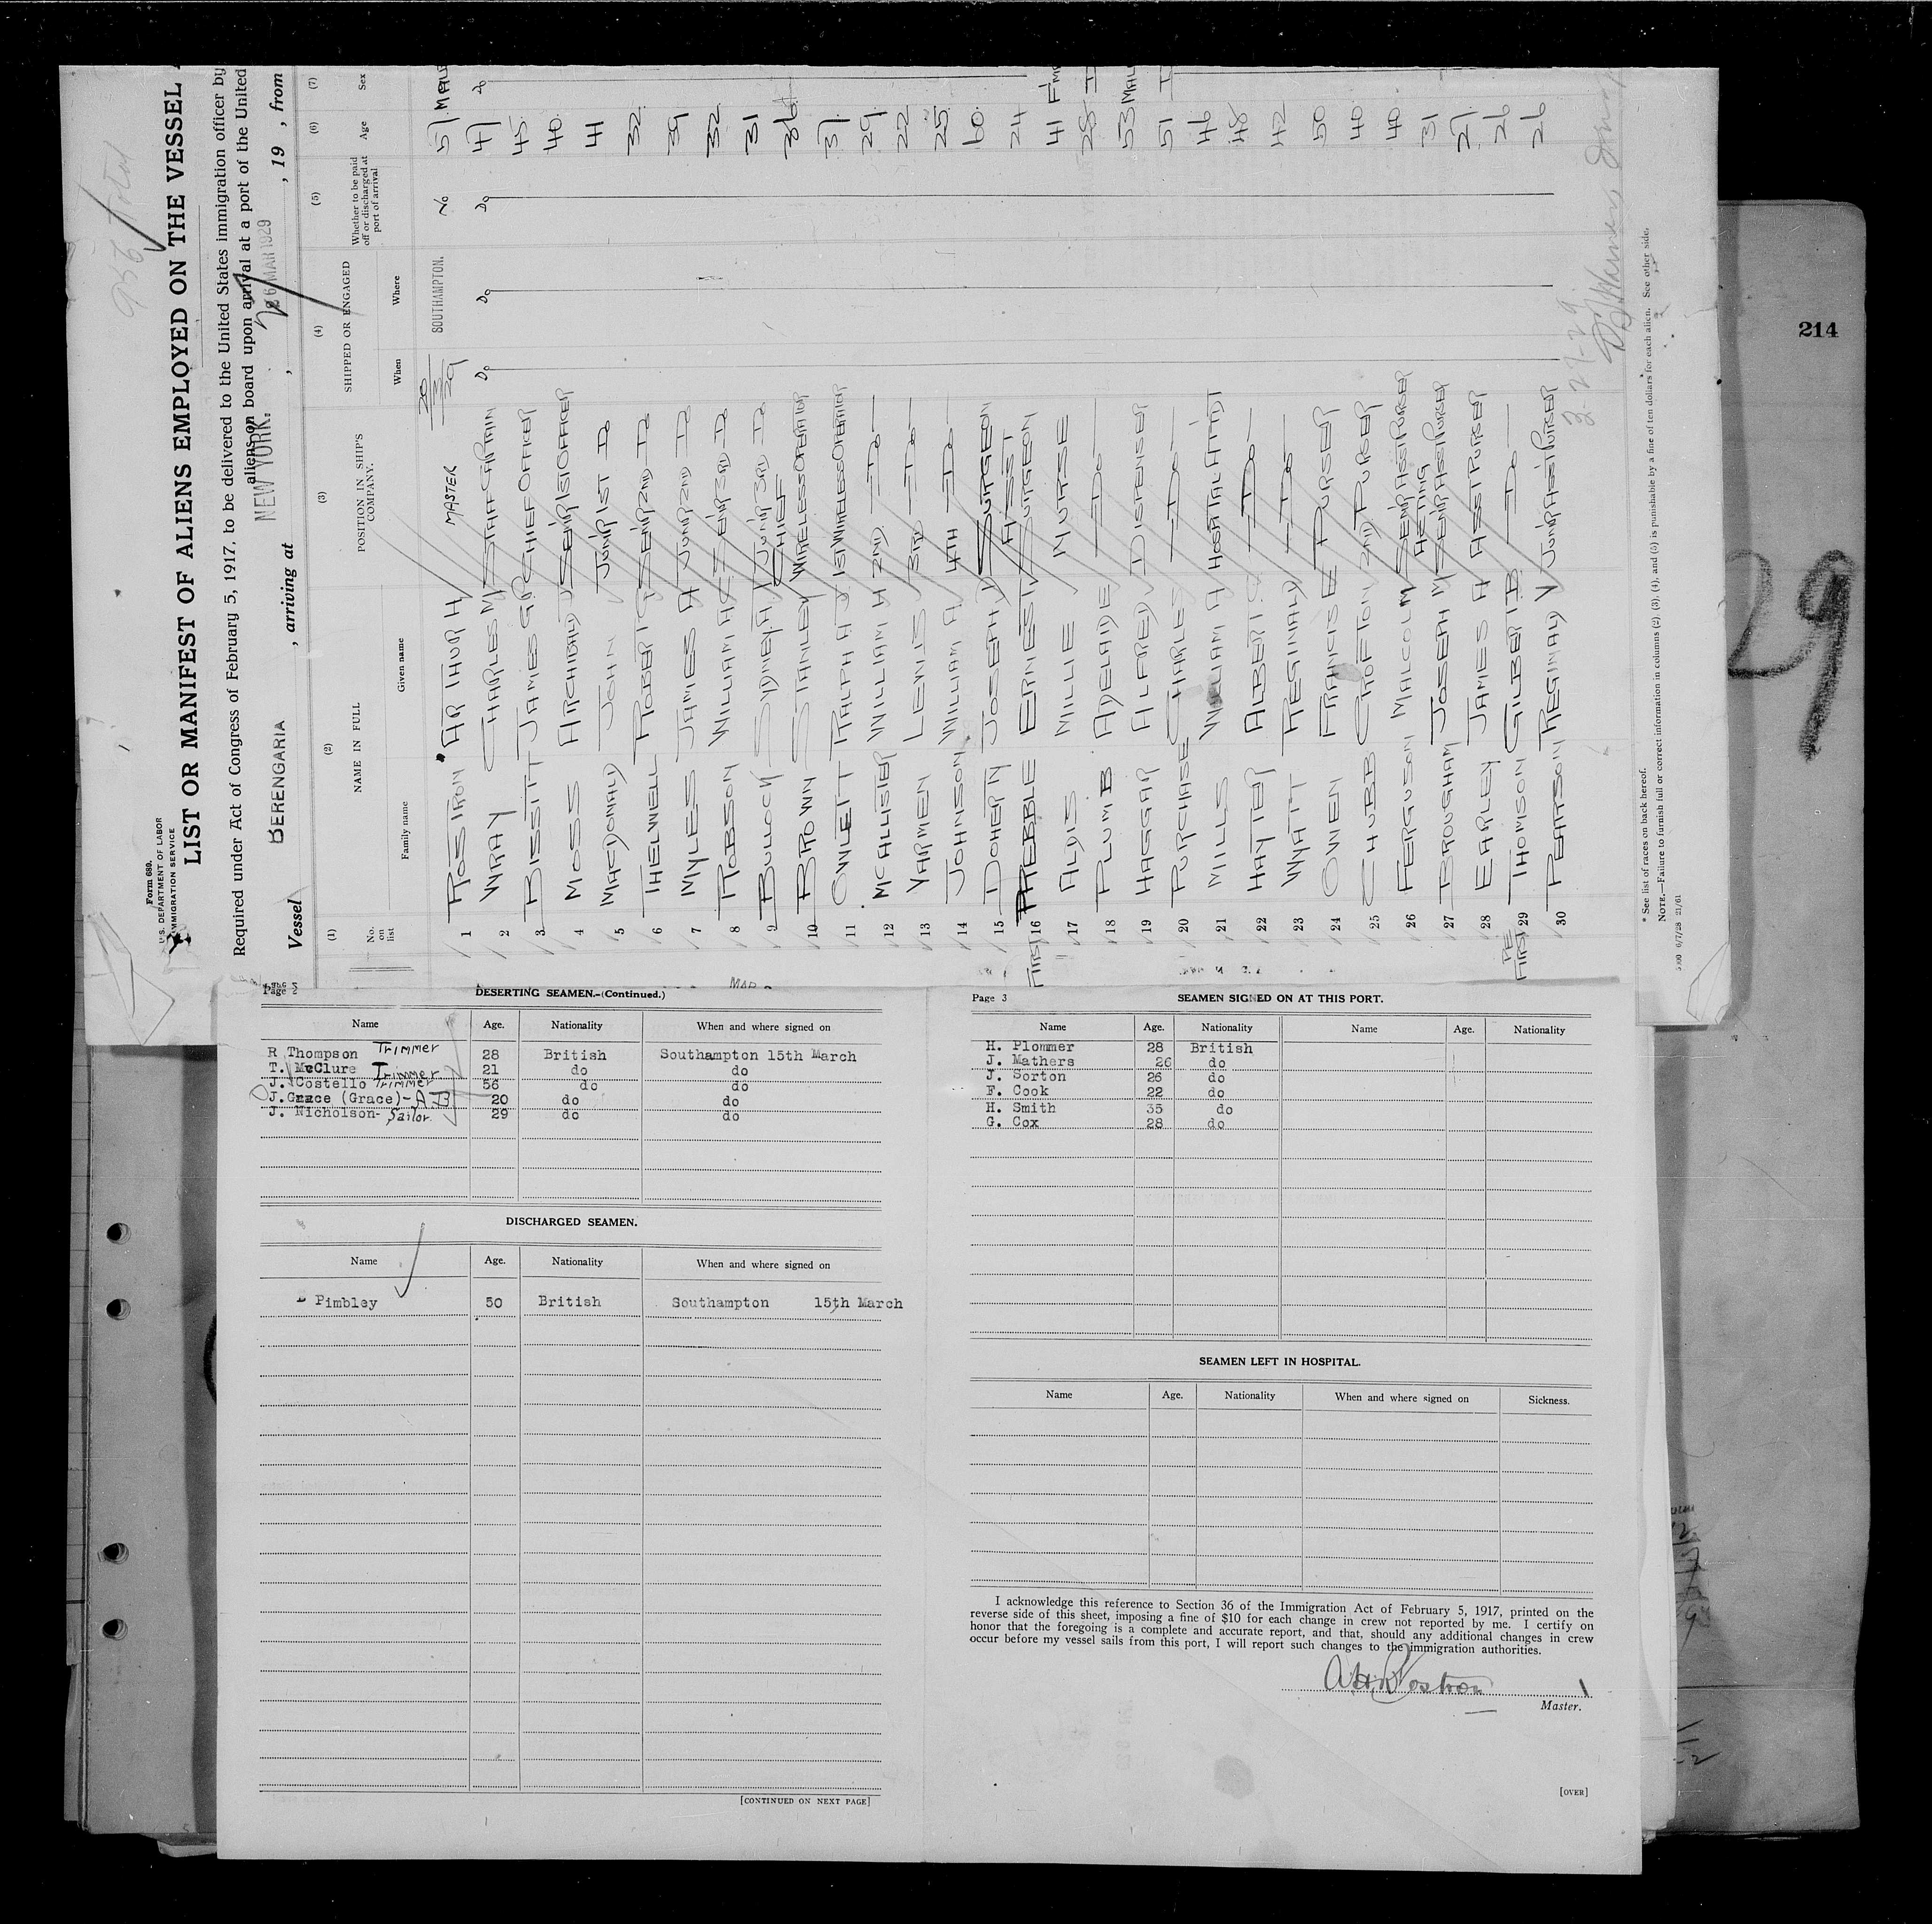 Form 689.
U.S. DEPARTMENT OF LABOR
IMMIGRATION SERVICE
LIST OR MANIFEST OF ALIENS EMPLOYED ON THE VESSEL
Required under Act of Congress of February 5, 1917, to be delivered to the United States immigration officer by
aliens on board upon arrival at a port of the United
Vessel BERENGARIA , arriving at NEW YORK. , 26 MAR 1929 , 19 , from
(1) (2) (3) (4) (5) (6) (7)
No. on list NAME IN FULL Family name Given name POSITION IN SHIP'S COMPANY. SHIPPED OR ENGAGED When Where Whether to be paid off or discharged at port of arrival Age Sex
1 ROSTRON ARTHUR H MASTER 20/3/29 SOUTHAMPTON. No 59 MALE
2 WRAY CHARLES M STAFF CAPTAIN Do Do Do 47 Do
3 BISSETT JAMES G P CHIEF OFFICER 45
4 MOSS ARCHIBALD J SENR 1ST OFFICER 40
5 MACDONALD JOHN JUNR 1ST Do 41
6 THELWELL ROBERT G SENR 2ND Do 32
7 MYLES JAMES A JUNR 2ND Do 39
8 ROBSON WILLIAM A C SENR 3RD Do 32
9 BULLOCK SYDNEY A JUNR 3RD Do 31
10 BROWN STANLEY CHIEF WIRELESS OPERATOR 36
11 OWLETT RALPH A J 1ST WIRELESS OPERATOR 37
12 MCALLISTER WILLIAM H 2ND Do 29
13 YARMEN LEWIS 3RD Do 22
14 JOHNSON WILLIAM A 4TH Do 25
15 DOHERTY JOSEPH D SURGEON 60
FIRST 16 PREBBLE ERNEST ASST SURGEON 24
17 ALDIS MILLIE NURSE 41
18 PLUMB ADELAIDE Do 28 Do
19 HAGGAR ALFRED J DISPENSER 53 MALE
20 PURCHASE CHARLES Do 51 Do
21 MILLS WILLIAM A HOSPITAL ATTDT 46
22 HAYTER ALBERT G Do 48
23 WYATT REGINALD Do 42
24 OWEN FRANCIS E PURSER 50
25 CHUBB CROFTON 2ND PURSER 40
26 FERGUSON MALCOLM M SENR ASST PURSER 40
27 BROUGHAM JOSEPH M ACTING SENR ASST PURSER 31
28 EARLEY JAMES A ASST PURSER 29
FIRST 29 THOMSON GILBERT B Do 26
30 PEARSON REGINALD V JUNR ASST PURSER 26
3-27-29
* See list of races on back hereof.
NOTE.—Failure to furnish full or correct information in columns (2), (3), (4), and (5) is punishable by a fine of ten dollars for each alien. See other side.
214
29
DESERTING SEAMEN.-(Continued.)
Name Age. Nationality When and where signed on
R Thompson Trimmer 28 British Southampton 15th March
T. McClure Trimmer 21 do do
J. Costello Trimmer 56 do do
J. Grace (Grace)- A B 20 do do
J. Nicholson- Sailor. 29 do do
DISCHARGED SEAMEN.
Name Age. Nationality When and where signed on
Pimbley 50 British Southampton 15th March
[CONTINUED ON NEXT PAGE]
Page 3 SEAMEN SIGNED ON AT THIS PORT.
Name Age. Nationality Name Age. Nationality
H. Plommer 28 British
J. Mathers 26 do
J. Sorton 26 do
F. Cook 22 do
H. Smith 35 do
G. Cox 28 do
SEAMEN LEFT IN HOSPITAL.
Name Age. Nationality When and where signed on Sickness.
I acknowledge this reference to Section 36 of the Immigration Act of February 5, 1917, printed on the
reverse side of this sheet, imposing a fine of $10 for each change in crew not reported by me. I certify on
honor that the foregoing is a complete and accurate report, and that, should any additional changes in crew
occur before my vessel sails from this port, I will report such changes to the immigration authorities.
A.H. Rostron
Master.
[OVER]